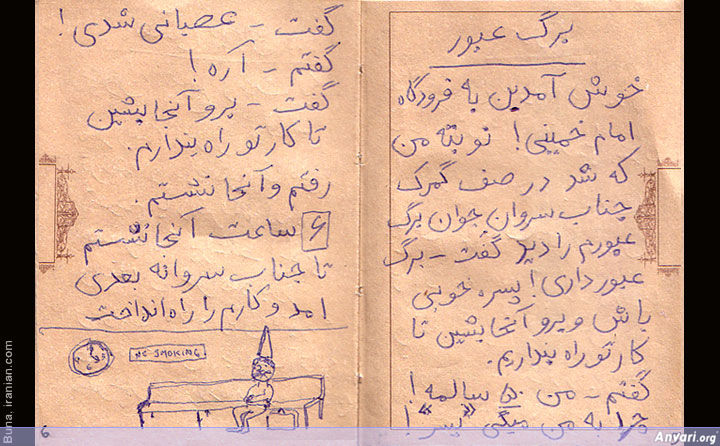 برگ عبور
خوش آمدین به فرودگاه
امام خمینی! نوبته من
که شد در صف گمرک
جناب سروان جوان برگ
عبورم را دید گفت - برگ
عبور داری! پسره خوبی
باش و برو آنجا بشین تا
کار تو راه بندازیم.
گفتم - من ۵۰ سالمه!
چرا به من میگی "پسر"!
گفت - عصبانی شدی!
گفتم - آره!
گفت - برو آنجا بشین
تا کار تو راه بندازم.
رفتم و آنجا نشستم.
۶ ساعت آنجا نشستم
تا جناب سروانه بعدی
امد و کارم را راه انداخت
NO SMOKING
6
Buna. iranian.com
Anyari.org